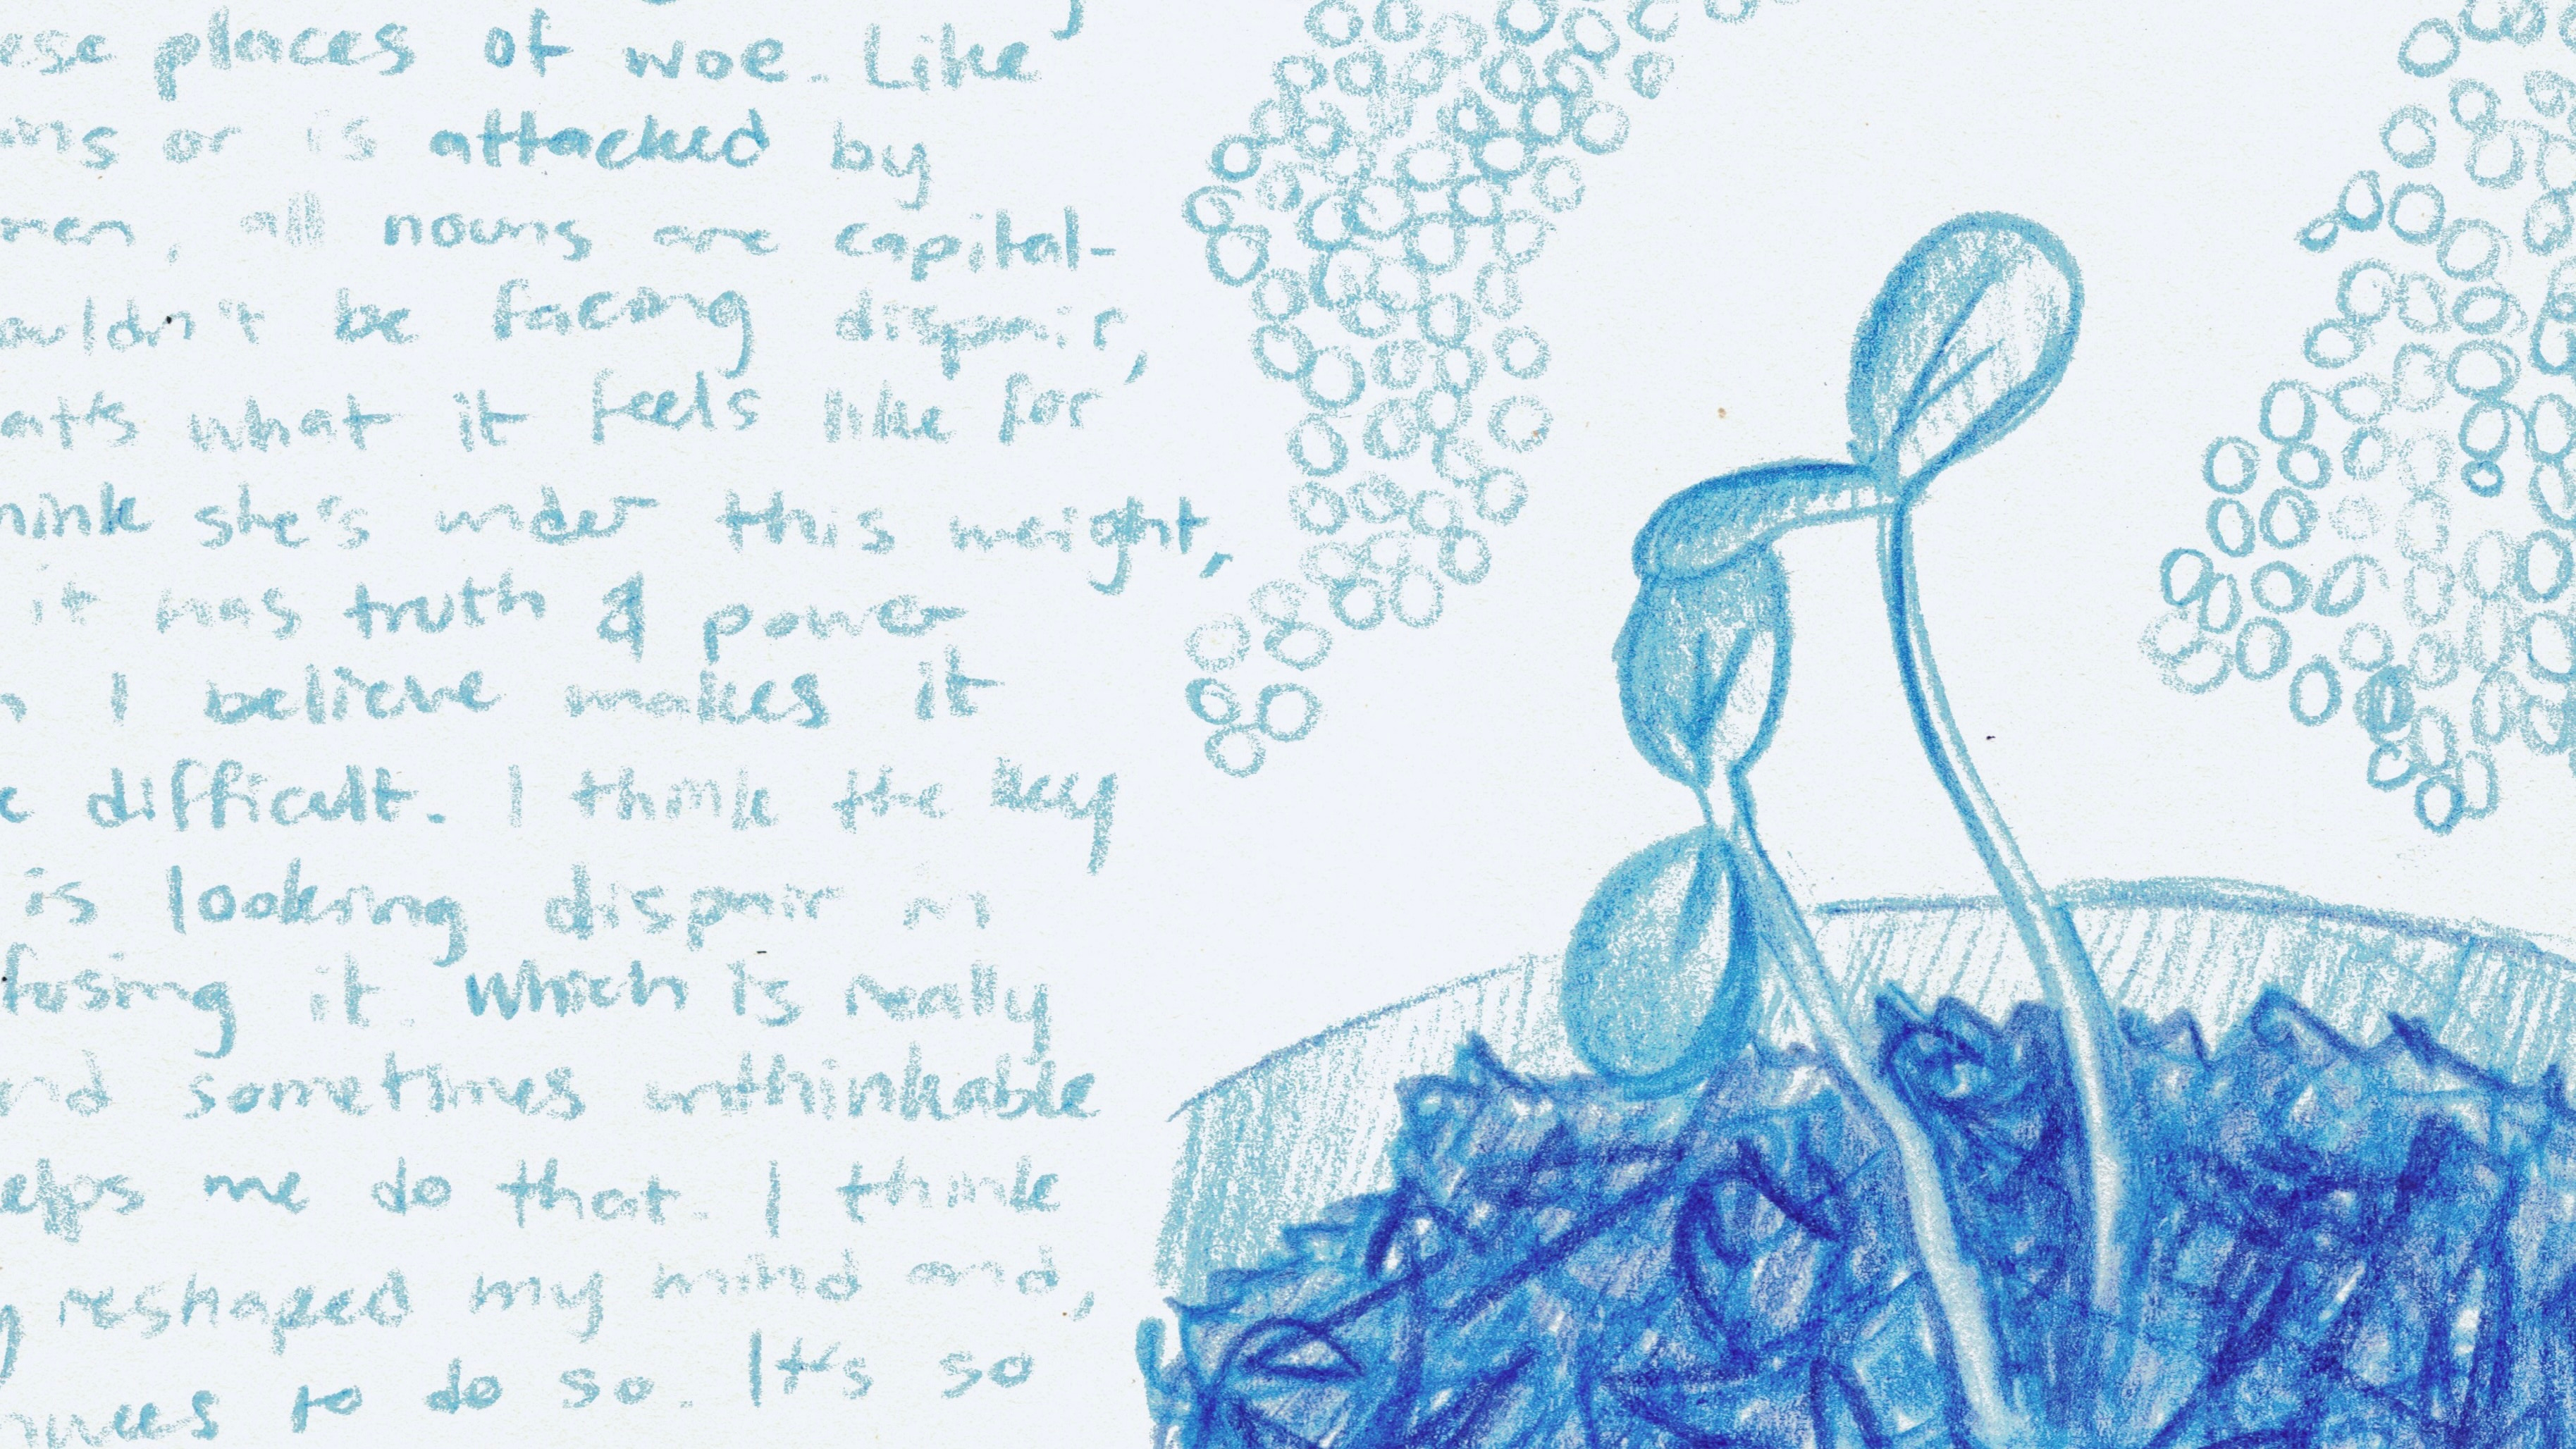 ese places of woe. Like
ms or is attacked by
men, all nouns are capital-
ouldn't be facing dispair,
at's what it feels like for
hink she's under this weight,
it has truth & power
n I believe makes it
e difficult. I think the key
is looking dispair in
fusing it. Which is really
nd sometimes unthinkable
elps me do that. I think
y reshaped my mind and,
nues to do so. It's so